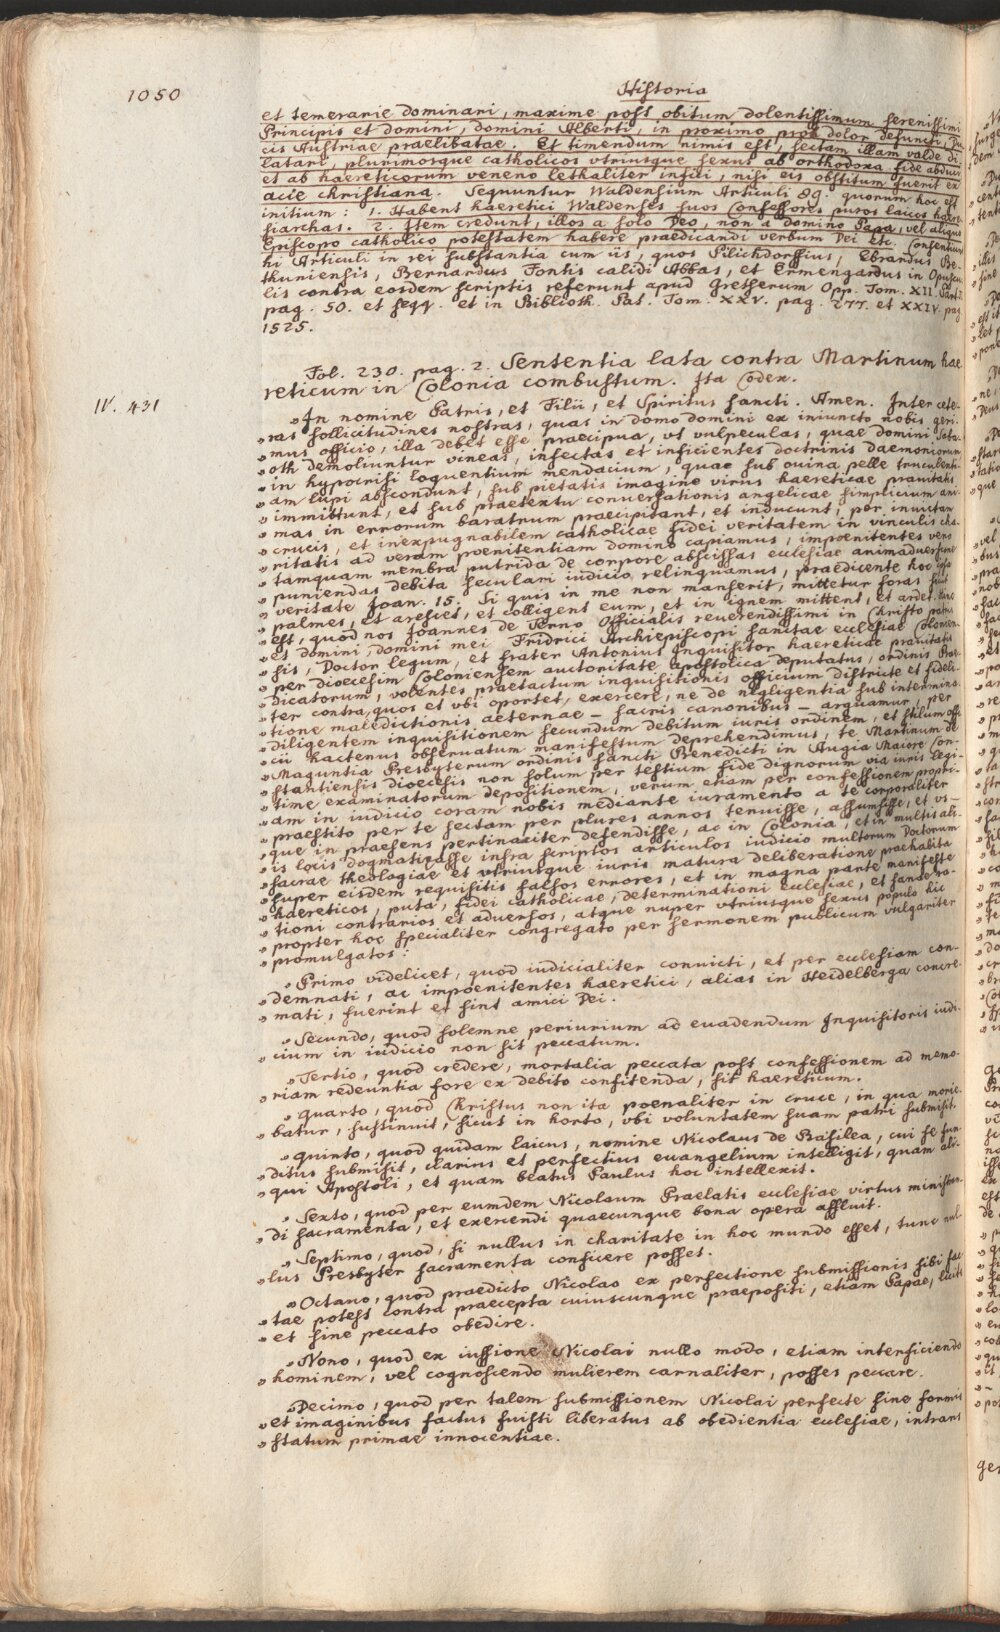 1050
Historia
et temerarie dominari, maxime post obitum dolentissimum serenissimi
Principis et domini, domini Alberti, in proximo proh dolor defuncti, Du-
cis Austriae praelibatae. Et timendum nimis est, sectam illam valde di-
latari, plurimosque catholicos vtriusque sexus ab orthodoxa fide abduci
et ab haereticorum veneno lethaliter infici, nisi eis obstitum fuerit ex
acie christiana. Sequuntur Waldensium Articuli 89. quorum hoc est
initium: 1. Habent haeretici Waldenses suos Confessores puros laicos haere-
siarchas. 2. Item credunt, illos a solo Deo, non a domino Papa, vel aliquo
Episcopo catholico potestatem habere praedicandi verbum Dei etc. Consentiunt
hi Articuli in rei substantia cum iis, quos Pilichdorffius, Ebrardus Be-
thuniensis, Bernardus Fontis calidi Abbas, et Ermengardus in Opuscu-
lis contra eosdem scriptis referunt apud Gretserum Opp. Tom. XII. Part.
pag. 50. et seqq. et in Biblioth. Pat. Tom. XXV. pag. 277. et XXIV. pag.
1525.
Fol. 230. pag. 2. Sententia lata contra Martinum hae
reticum in Colonia combustum. Ita Codex.
IV. 431
„In nomine Patris, et Filii, et Spiritus sancti. Amen. Inter cete-
„ras sollicitudines nostras, quas in domo domini ex iniuncto nobis geri-
„mus officio, illa debet esse praecipua, vt vulpeculas, quae domini Saba-
„oth demoliuntur vineas, infectas et inficientes doctrinis daemoniorum
„in hypocrisi loquentium mendacium, quae sub ouina pelle truculenti-
„am lupi abscondunt, sub pietatis imagine virus haereticae prauitatis
„immittunt, et sub praetextu conuersationis angelicae simplicium ani-
„mas in errorum baratrum praecipitant, et inducunt, per inuictam
„crucis, et inexpugnabilem catholicae fidei veritatem in vinculis cha-
„ritatis ad veram poenitentiam domino capiamus, impoenitentes vero
„tamquam membra putrida de corpore abscissas ecclesiae animaduersione
„puniendas debita seculari iudicio relinquamus, praedicente hoc ipsa
„veritate Joan. 15. Si quis in me non manserit, mittetur foras sicut
„palmes, et arescet, et colligent eum, et in ignem mittent, et ardet. Hinc
„est, quod nos Joannes de Perno Officialis reuerendissimi in Christo patris
„et domini, domini mei Fridrici Archiepiscopi sanctae ecclesiae Colonien-
„sis, Doctor legum, et frater Antonius Inquisitor haereticae prauitatis
„per dioecesim Coloniensem auctoritate apostolica deputatus, ordinis Prae-
„dicatorum, volentes praetactum inquisitionis officium districte et fideli-
„ter contra, quos et vbi oportet, exercere, ne de negligentia sub intermina-
„tione maledictionis aeternae – sacris canonibus – arguamur, per
„diligentem inquisitionem secundum debitum iuris ordinem, et stilum offi-
„cii hactenus obseruatum manifestum deprehendimus, te Martinum de
„Maguntia Presbyterum ordinis sancti Benedicti in Augia Maiore Con-
„stantiensis dioecesis non solum per testium fide dignorum via iuris legi-
„time examinatorum depositionem, verum etiam per confessionem propri-
„am in iudicio coram nobis mediante iuramento a te corporaliter
„praestito per te sectam per plures annos tenuisse, assumsisse, et vs-
„que in praesens pertinaciter defendisse, ac in Colonia, et in multis ali-
„is locis dogmatizasse infra scriptos articulos iudicio multorum Doctorum
„sacrae theologiae et vtriusque iuris matura deliberatione praehabita
„super eisdem requisitis falsos errores, et in magna parte manifeste
„haereticos, puta, fidei catholicae, determinationi ecclesiae, et sanae ra-
„tioni contrarios et aduersos, atque nuper vtriusque sexus populo hic
„propter hoc specialiter congregato per sermonem publicum vulgariter
„promulgatos:
„Primo videlicet, quod iudicialiter conuicti, et per ecclesiam con-
„demnati, ac impoenitentes haeretici, alias in Heidelberga concre-
„mati, fuerint et sint amici Dei.
„Secundo, quod solemne periurium ad euadendum Inquisitoris iudi-
„cium in iudicio non sit peccatum.
„Tertio, quod credere, mortalia peccata post confessionem ad memo-
„riam redeuntia fore ex debito confitenda, sit haereticum.
„Quarto, quod Christus non ita poenaliter in cruce, in qua morie-
„batur, sustinuit, sicut in horto, vbi voluntatem suam patri submisit.
„Quinto, quod quidam laicus, nomine Nicolaus de Basilea, cui se fun-
„ditus submisit, clarius et perfectius euangelium intelligit, quam ali-
„qui Apostoli, et quam beatus Paulus hoc intellexit.
„Sexto, quod per eumdem Nicolaum Praelatis ecclesiae virtus ministran-
„di sacramenta, et exercendi quaecunque bona opera affluit.
„Septimo, quod, si nullus in charitate in hoc mundo esset, tunc nul-
„lus Presbyter sacramenta conficere posset.
„Octauo, quod praedicto Nicolao ex perfectione submissionis sibi fac-
„tae potest contra praecepta cuiuscunque praepositi, etiam Papae, licite
„et sine peccato obedire.
„Nono, quod ex iussione Nicolai nullo modo, etiam interficiendo
„hominem, vel cognoscendo mulierem carnaliter, posset peccare.
„Decimo, quod per talem submissionem Nicolai perfecte sine formis
„et imaginibus factus fuisti liberatus ab obedientia ecclesiae, intrans
„statum primae innocentiae.